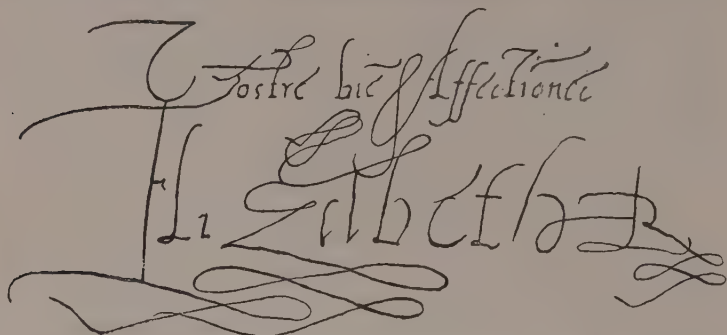 Vostre biẽ Affectionée
Elizabeth R